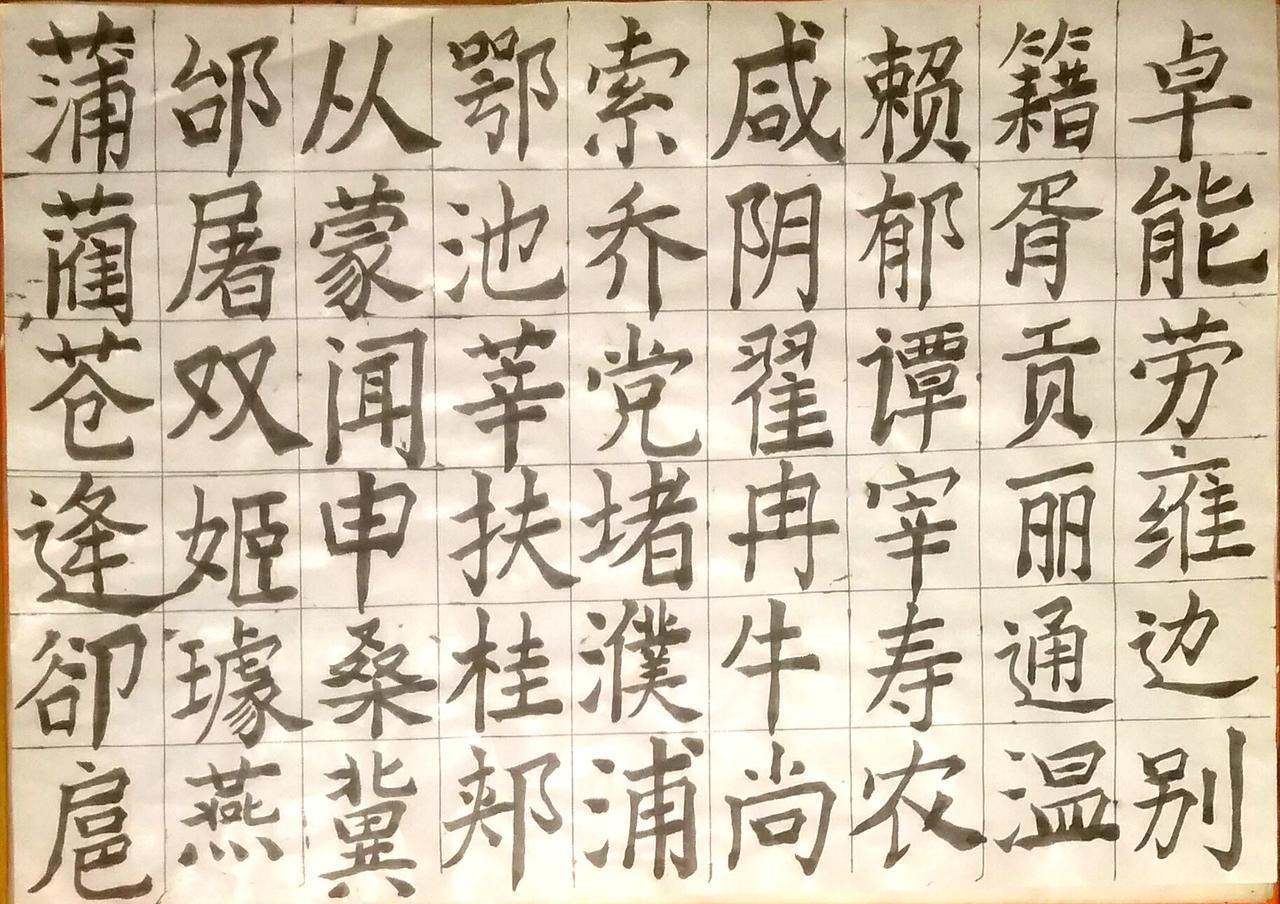 蒲邰从鄂索咸赖籍卓
蔺屠蒙池乔阴郁胥能
苍双闻莘党翟谭贡劳
逢姬申扶堵冉宰丽雍
卻璩桑桂濮牛寿通边
扈燕冀郏浦尚农温别